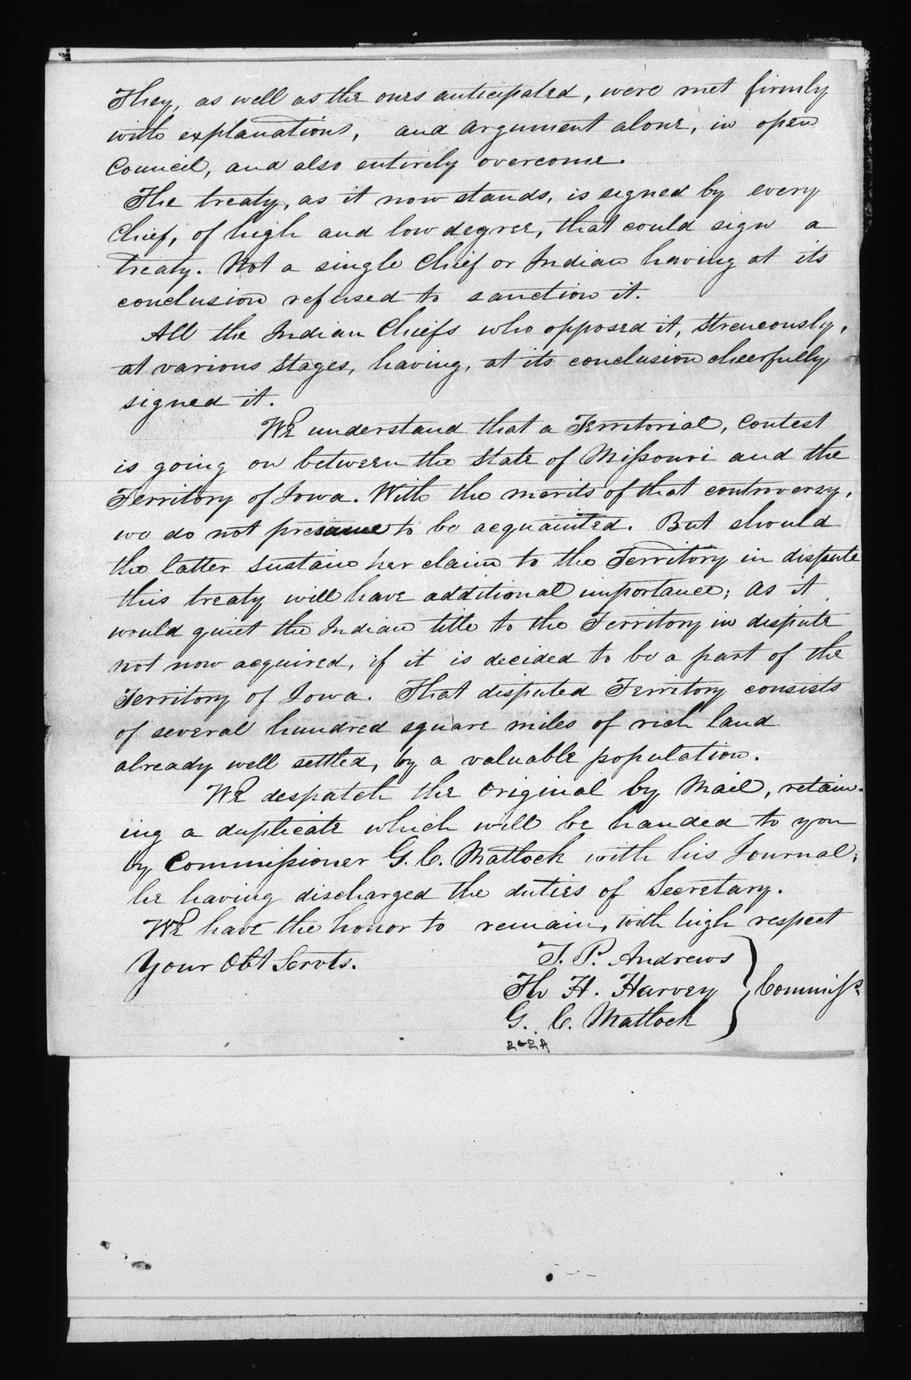 They, as well as the ones anticipated, were met firmly
with explanations, and argument alone, in open
Council, and also entirely overcome.
The treaty, as it now stands, is signed by every
Chief, of high and low degree, that could sign a
treaty. Not a single Chief or Indian having at its
conclusion refused to sanction it.
All the Indian Chiefs who opposed it, streneously,
at various stages, having, at its conclusion cheerfully
signed it.
We understand that a Territorial, Contest
is going on between the State of Missouri and the
Territory of Iowa. With the merits of that controversy,
we do not presume to be acquainted. But should
the latter sustain her claim to the Territory in dispute
this treaty will have additional importance; as it
would quiet the Indian title to the Territory in dispute
not now acquired, if it is decided to be a part of the
Territory of Iowa. That disputed Territory consists
of several hundred square miles of rich land
already well settled, by a valuable population.
We despatch the Original by Mail, retain-
ing a duplicate which will be handed to you
by Commissioner G. C. Matlock with his Journal;
he having discharged the duties of Secretary.
We have the honor to remain, with high respect
Your Obt Servts.
T. P. Andrews
Th H. Harvey } Commissr
G. C. Matlock